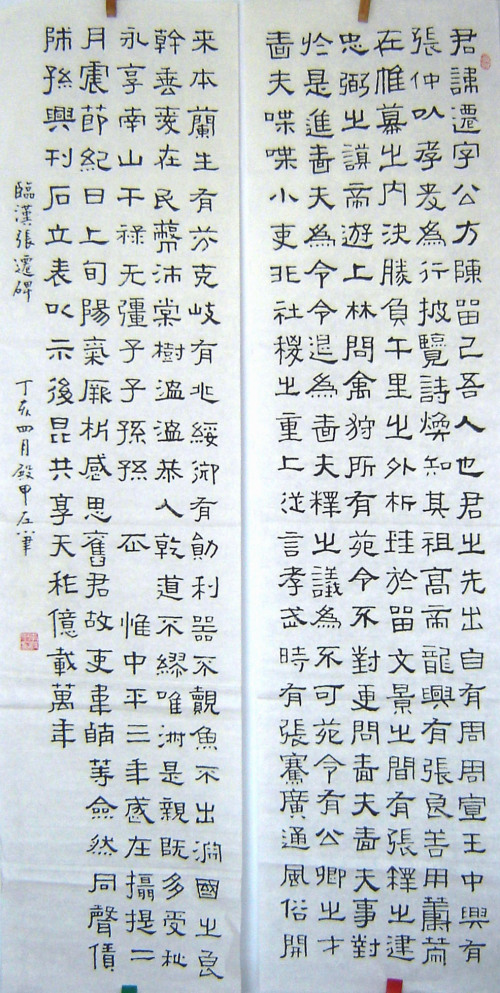 君諱遷字公方陳留己吾人也君之先出自有周周宣王中興有
張仲以孝友為行披覽詩煥知其祖高帝龍興有張良善用籌策
在帷幕之內決勝負千里之外析珪於留文景之間有張釋之建
忠弼之謨帝遊上林問禽狩所有苑令不對更問嗇夫嗇夫事對
於是進嗇夫為令令退為嗇夫釋之議為不可苑令有公卿之才
嗇夫喋喋小吏非社稷之重上從言孝武時有張騫廣通風俗開
来本蘭生有芬克岐有兆綏御有勛利器不覿魚不出淵國之良
幹垂愛在民蔽沛棠樹溫溫恭人乾道不繆唯淑是親既多受祉
永享南山干祿无疆子子孫孫 惟中平三年歲在攝提二
月震節紀日上旬陽氣厥析感思舊君故吏韋萌等僉然同聲賃
師孫興刊石立表以示後昆共享天祚億載萬年
臨漢張遷碑 丁亥四月 殷甲左筆